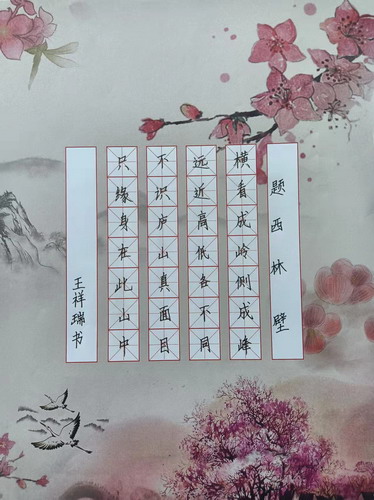 题西林壁
横看成岭侧成峰
远近高低各不同
不识庐山真面目
只缘身在此山中
王祥瑞书